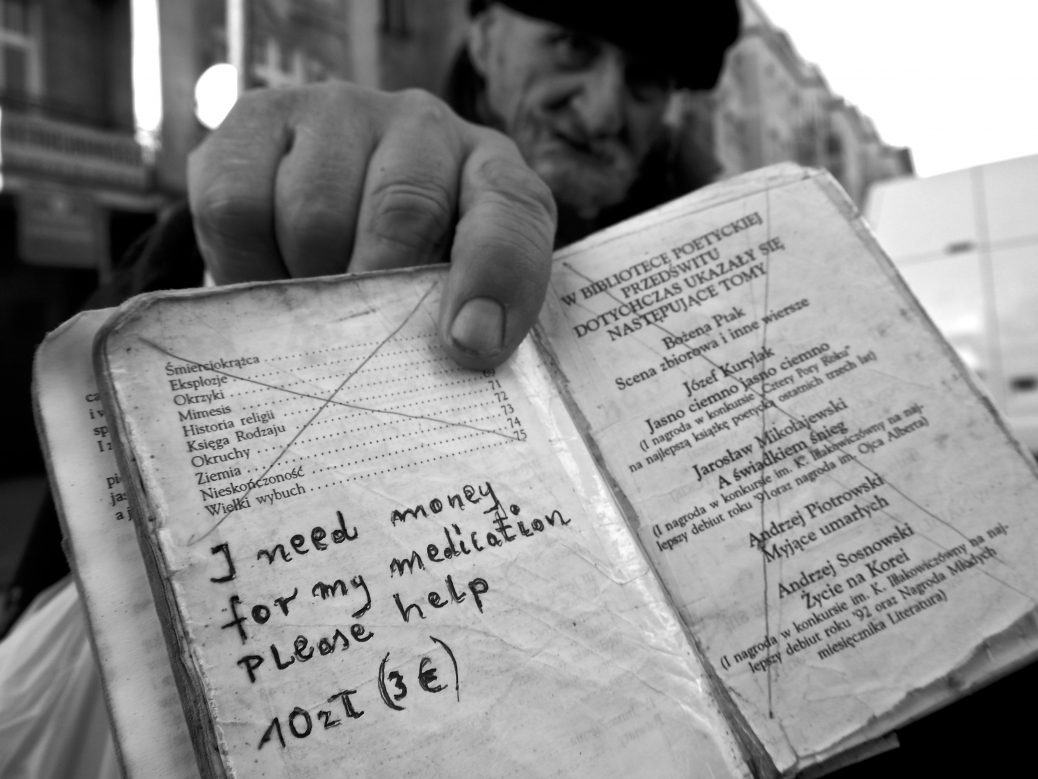 Śmierciokrążca
Eksplozje
Okrzyki 69
Mimesis 71
Historia religii 72
Księga Rodzaju 73
Okruchy 74
Ziemia 75
Nieskończoność
Wielki wybuch
I need money
for my medication
PLease help
10zł (3 €)
W BIBLIOTECE POETYCKIEJ
PRZEDŚWITU
DOTYCHCZAS UKAZAŁY SIĘ
NASTĘPUJĄCE TOMY
Bożena Ptak
Scena zbiorowa i inne wiersze
Józef Kurylak
Jasno ciemno jasno ciemno
(I nagroda w konkursie „Cztery Pory Roku”
na najlepszą książkę poetycką ostatnich trzech lat)
Jarosław Mikołajewski
A świadkiem śnieg
(I nagroda w konkursie im. K. Iłłakowiczówny na naj-
lepszy debiut roku '91 oraz nagroda im. Ojca Alberta)
Andrzej Piotrowski
Myjące umarłych
Andrzej Sosnowski
Życie na Korei
(I nagroda w konkursie im. K. Iłłakowiczówny na naj-
lepszy debiut roku '92 oraz Nagroda Młodych
miesięcznika Literatura)